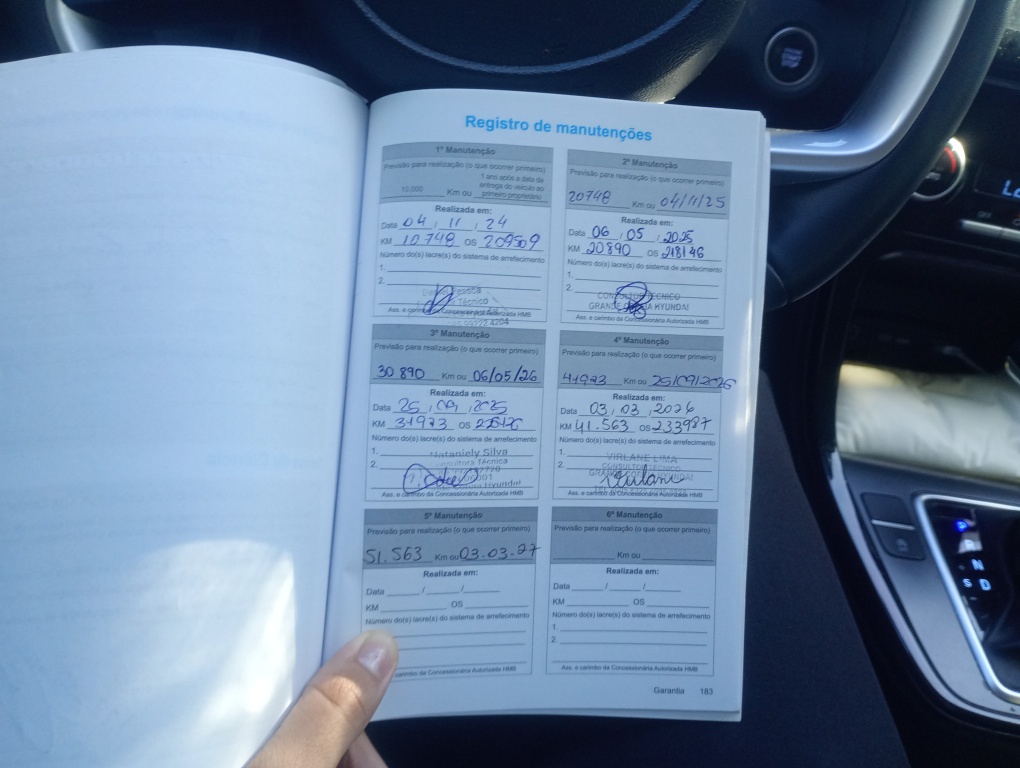 Registro de manutenções
1º Manutenção
Previsão para realização (o que ocorrer primeiro)
10.000 Km ou 1 ano após a data da
entrega do veículo ao
primeiro proprietário
Realizada em:
Data 04 / 11 / 24
KM 10 748 OS 209509
Número do(s) lacre(s) do sistema de arrefecimento
1.
2.
Técnico
Ass. e carimbo da Concessionária Autorizada HMB
2º Manutenção
Previsão para realização (o que ocorrer primeiro)
20748 Km ou 04/11/25
Realizada em:
Data 06 / 05 / 2025
KM 20890 OS 218146
Número do(s) lacre(s) do sistema de arrefecimento
1.
2.
CONSULTOR TÉCNICO
GRANDE HYUNDAI
Ass. e carimbo da Concessionária Autorizada HMB
3º Manutenção
Previsão para realização (o que ocorrer primeiro)
30 890 Km ou 06/05/26
Realizada em:
Data 25 / 09 / 2025
KM 31973 OS
Número do(s) lacre(s) do sistema de arrefecimento
1.
2.
Nataniely Silva
Consultora Técnica
Hyundai
Ass. e carimbo da Concessionária Autorizada HMB
4º Manutenção
Previsão para realização (o que ocorrer primeiro)
41973 Km ou 25/09/2026
Realizada em:
Data 03 / 03 / 2026
KM 41.563 OS 233987
Número do(s) lacre(s) do sistema de arrefecimento
1.
2.
VIRLANE LIMA
CONSULTOR TÉCNICO
Ass. e carimbo da Concessionária Autorizada HMB
5º Manutenção
Previsão para realização (o que ocorrer primeiro)
51.563 Km ou 03.03.27
Realizada em:
Data / /
KM OS
Número do(s) lacre(s) do sistema de arrefecimento
carimbo da Concessionária Autorizada HMB
6º Manutenção
Previsão para realização (o que ocorrer primeiro)
Km ou
Realizada em:
Data / /
KM OS
Número do(s) lacre(s) do sistema de arrefecimento
1.
2.
Ass. e carimbo da Concessionária Autorizada HMB
Garantia 183
N
S D